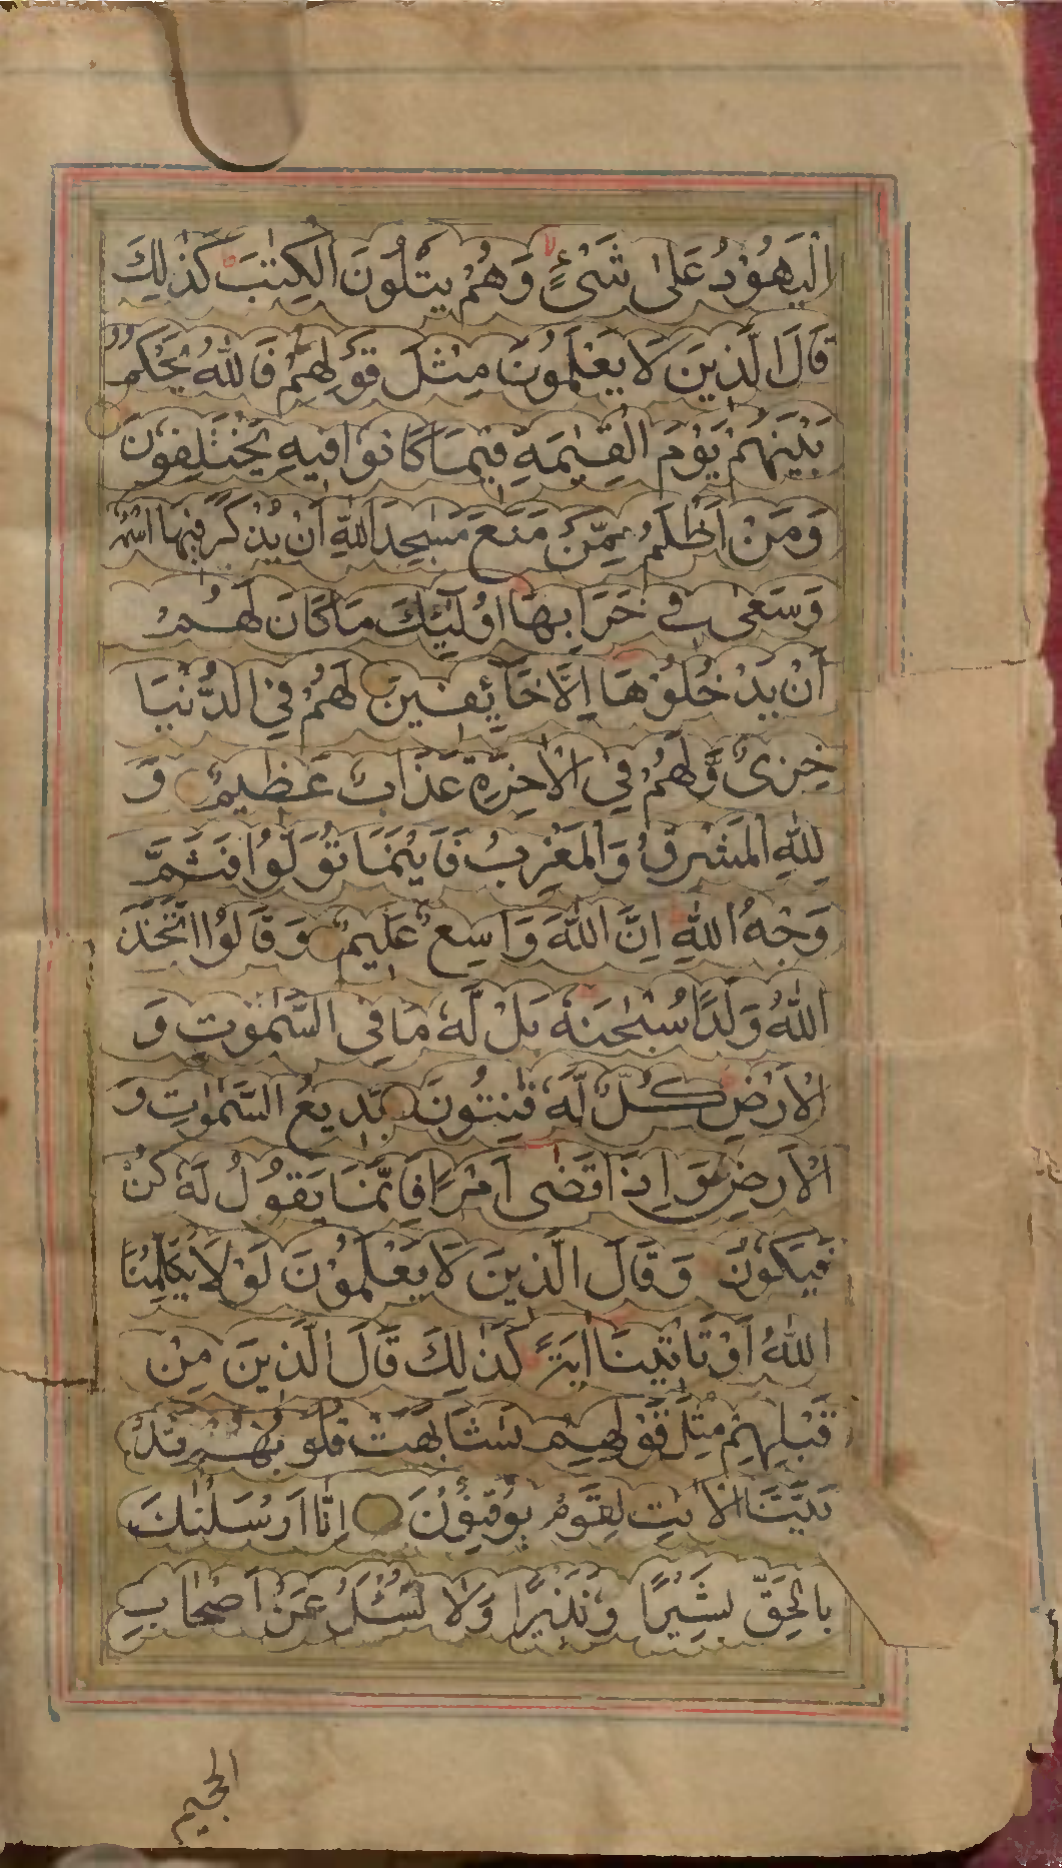 الْيَهُوْدُ عَلٰى شَىْءٍ وَهُمْ يَتْلُونَ الْكِتٰبَ كَذٰلِكَ
قَالَ الَّذِينَ لَا يَعْلَمُونَ مِثْلَ قَوْلِهِمْ فَاللهُ يَحْكُمُ
بَيْنَهُمْ يَوْمَ الْقِيٰمَةِ فِيمَا كَانُوا فِيهِ يَخْتَلِفُونَ
وَمَنْ اَظْلَمُ مِمَّنْ مَنَعَ مَسٰجِدَ اللهِ اَنْ يُذْكَرَ فِيهَا اسْمُهُ
وَسَعٰى فِى خَرَابِهَا اُولٰٓئِكَ مَا كَانَ لَهُمْ
اَنْ يَدْخُلُوْهَا اِلَّا خَآئِفِينَ لَهُمْ فِى الدُّنْيَا
خِزْىٌ وَّلَهُمْ فِى الْاٰخِرَةِ عَذَابٌ عَظِيمٌ وَ
لِلّٰهِ الْمَشْرِقُ وَالْمَغْرِبُ فَاَيْنَمَا تُوَلُّوْا فَثَمَّ
وَجْهُ اللهِ اِنَّ اللهَ وَاسِعٌ عَلِيمٌ وَقَالُوا اتَّخَذَ
اللهُ وَلَدًا سُبْحٰنَهٗ بَلْ لَّهٗ مَا فِى السَّمٰوٰتِ وَ
الْاَرْضِ كُلٌّ لَّهٗ قٰنِتُونَ بَدِيعُ السَّمٰوٰتِ وَ
الْاَرْضِ وَاِذَا قَضٰى اَمْرًا فَاِنَّمَا يَقُولُ لَهٗ كُنْ
فَيَكُونُ وَقَالَ الَّذِينَ لَا يَعْلَمُوْنَ لَوْلَا يُكَلِّمُنَا
اللهُ اَوْ تَاْتِينَا اٰيَةٌ كَذٰلِكَ قَالَ الَّذِينَ مِنْ
قَبْلِهِمْ مِثْلَ قَوْلِهِمْ تَشَابَهَتْ قُلُوبُهُمْ قَدْ
بَيَّنَّا الْاٰيٰتِ لِقَوْمٍ يُوْقِنُوْنَ اِنَّا اَرْسَلْنٰكَ
بِالْحَقِّ بَشِيْرًا وَنَذِيْرًا وَلَا تُسْئَلُ عَنْ اَصْحَابِ
الجحيم